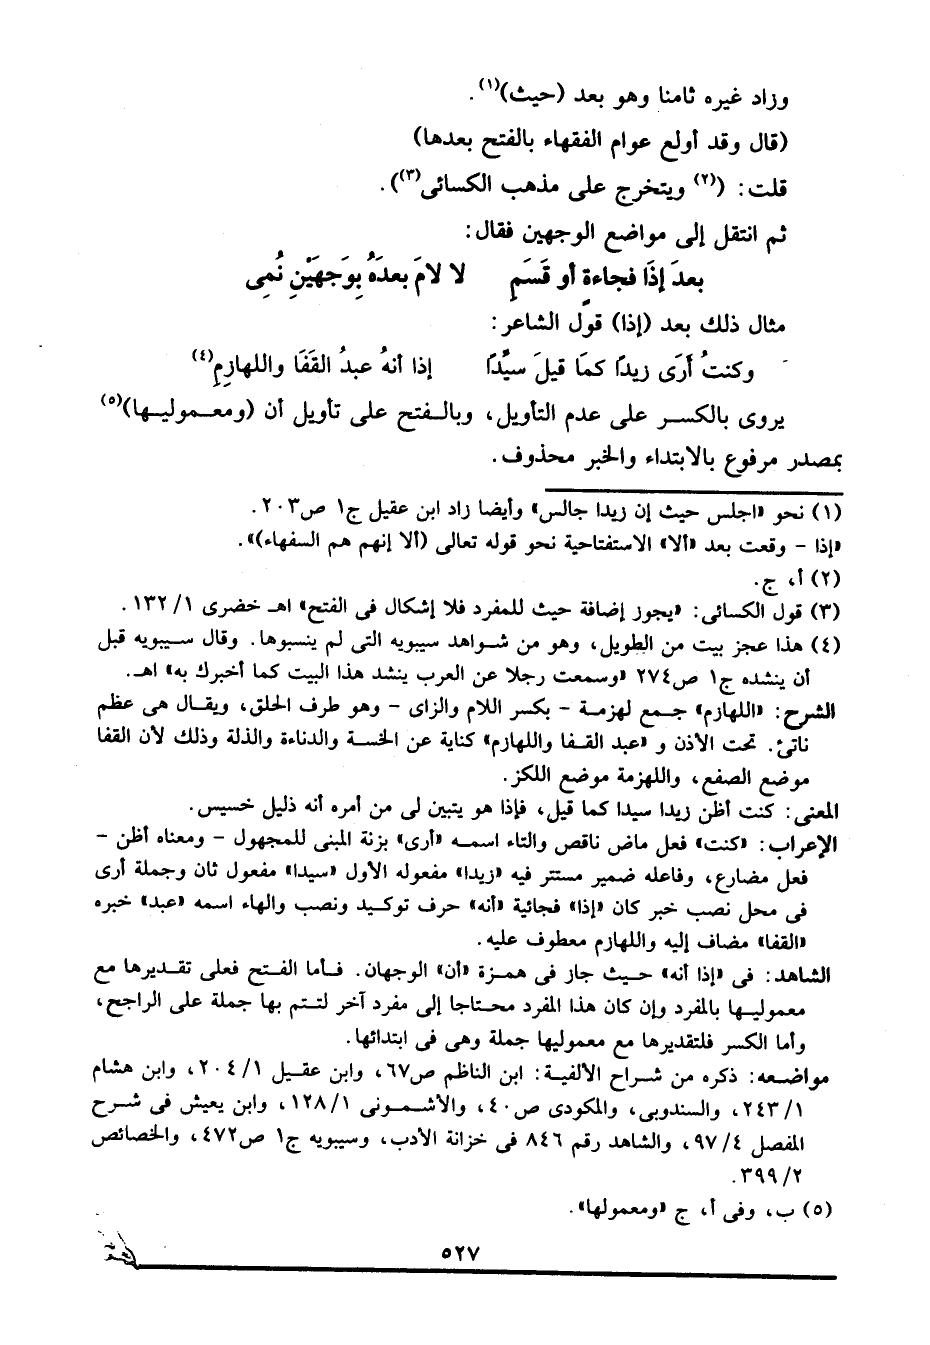 وزاد غيره ثامنا وهو بعد (حيث)(١).
(قال وقد أولع عوام الفقهاء بالفتح بعدها)
قلت: ((٢) ويتخرج على مذهب الكسائى(٣)).
ثم انتقل إلى مواضع الوجهين فقال:
بعدَ إذَا فجاءةٍ أو قَسَمِ لا لامَ بعدَهُ بِوَجهَيْنِ نُمِى
مثال ذلك بعد (إذا) قول الشاعر:
وكنتُ أرَى زيدًا كمَا قيلَ سيَّدًا إذا أنهُ عبدُ القَفَا واللهازِمِ(٤)
يروى بالكسر على عدم التأويل، وبالفتح على تأويل أن (ومعموليها)(٥)
بمصدر مرفوع بالابتداء والخبر محذوف.
(١) نحو «اجلس حيث إن زيدا جالس» وأيضا زاد ابن عقيل جـ١ ص٢٠٣.
«إذا - وقعت بعد «ألا» الاستفتاحية نحو قوله تعالى (ألا إنهم هم السفهاء)».
(٢) أ، جـ.
(٣) قول الكسائى: «يجوز إضافة حيث للمفرد فلا إشكال فى الفتح» اهـ خضرى ١/ ١٣٢.
(٤) هذا عجز بيت من الطويل، وهو من شواهد سيبويه التى لم ينسبوها. وقال سيبويه قبل
أن ينشده جـ١ ص٢٧٤ «وسمعت رجلا عن العرب ينشد هذا البيت كما أخبرك به» اهـ.
الشرح: «اللهازم» جمع لهزمة - بكسر اللام والزاى - وهو طرف الحلق، ويقال هى عظم
ناتئ. تحت الأذن و «عبد القفا واللهازم» كناية عن الخسة والدناءة والذلة وذلك لأن القفا
موضع الصفع، واللهزمة موضع اللكز.
المعنى: كنت أظن زيدا سيدا كما قيل، فإذا هو يتبين لى من أمره أنه ذليل خسيس.
الإعراب: «كنت» فعل ماض ناقص والتاء اسمه «أرى» بزنة المبنى للمجهول - ومعناه أظن -
فعل مضارع، وفاعله ضمير مستتر فيه «زيدا» مفعوله الأول «سيدا» مفعول ثان وجملة أرى
فى محل نصب خبر كان «إذا» فجائية «أنه» حرف توكيد ونصب والهاء اسمه «عبد» خبره
«القفا» مضاف إليه واللهازم معطوف عليه.
الشاهد: فى «إذا أنه» حيث جاز فى همزة «أن» الوجهان. فأما الفتح فعلى تقديرها مع
معموليها بالمفرد وإن كان هذا المفرد محتاجا إلى مفرد آخر لتتم بها جملة على الراجح،
وأما الكسر فلتقديرها مع معموليها جملة وهى فى ابتدائها.
مواضعه: ذكره من شراح الألفية: ابن الناظم ص٦٧، وابن عقيل ١/ ٢٠٤، وابن هشام
١/ ٢٤٣، والسندوبى، والمكودى ص٤٠، والأشمونى ١/ ١٢٨، وابن يعيش فى شرح
المفصل ٤/ ٩٧، والشاهد رقم ٨٤٦ فى خزانة الأدب، وسيبويه جـ١ ص٤٧٢، والخصائص
٢/ ٣٩٩.
(٥) ب، وفى أ، جـ «ومعمولها».
٥٢٧